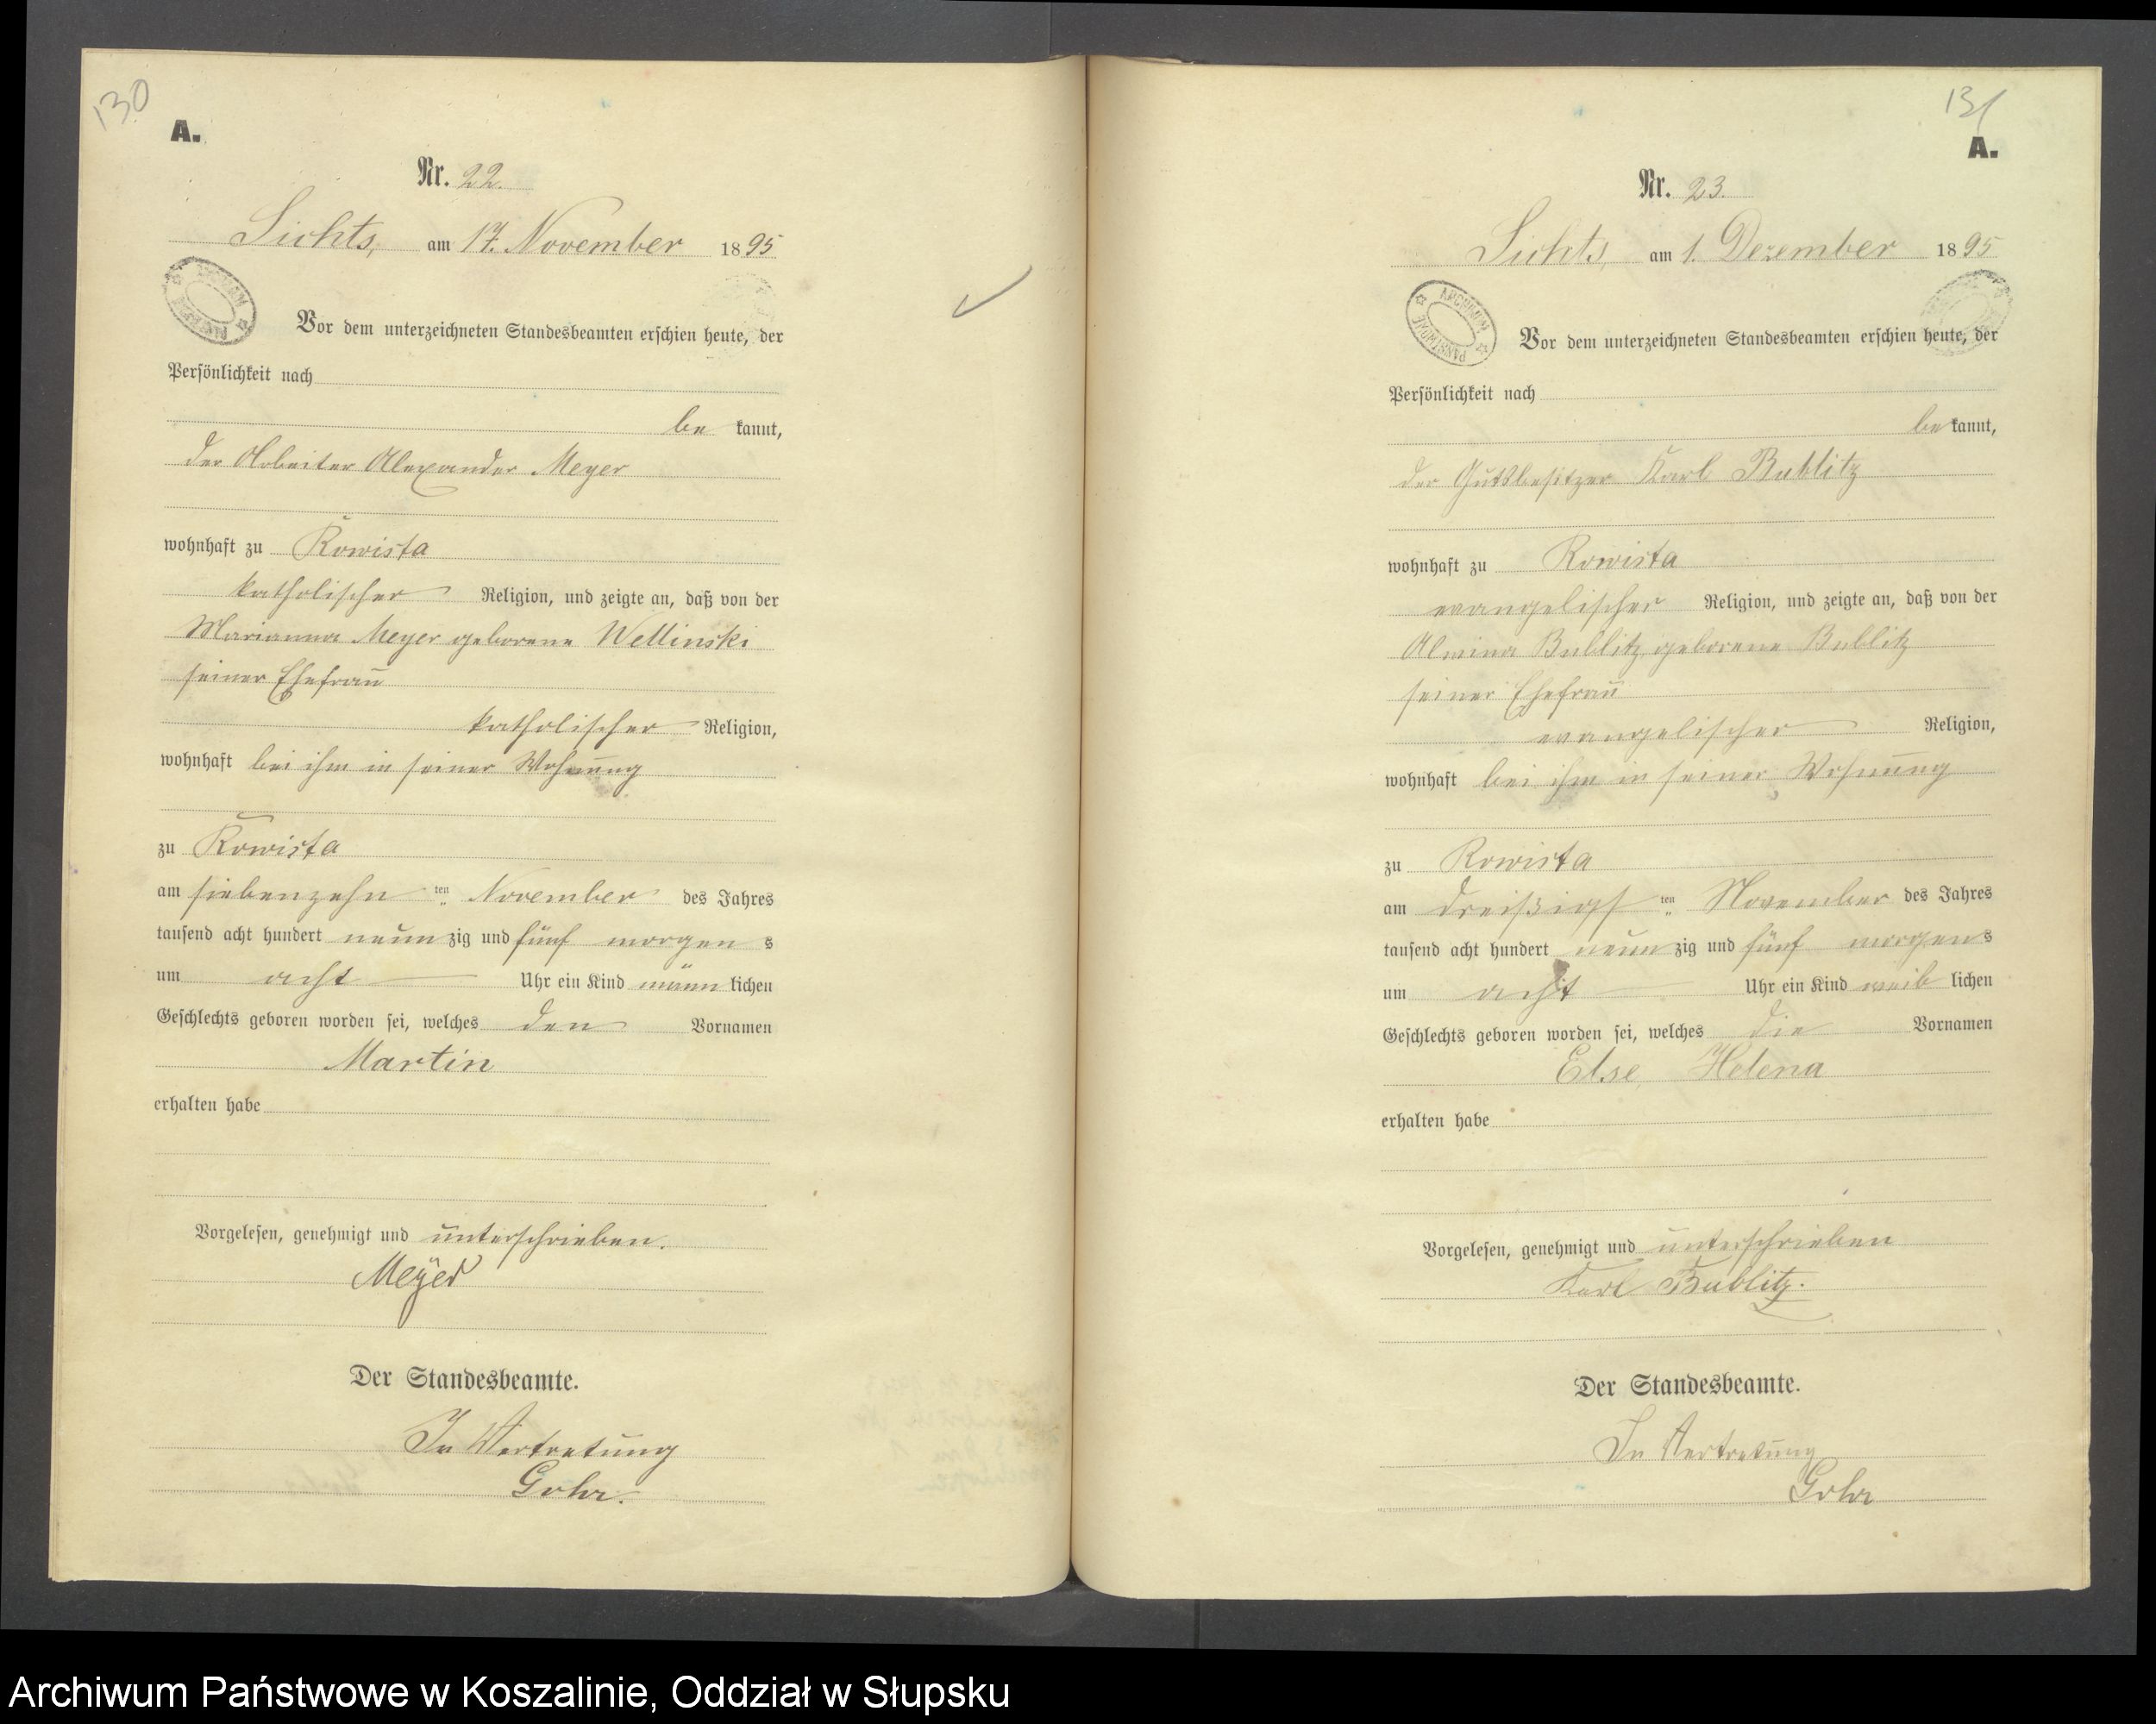 130
A.
Nr. 22.
Sichts, am 17. November 1895
Vor dem unterzeichneten Standesbeamten erschien heute, der
Persönlichkeit nach
be kannt,
der Arbeiter Alexander Meyer
wohnhaft zu Rowista
katholischer Religion, und zeigte an, daß von der
Marianna Meyer geborene Wellinski
seiner Ehefrau
katholischer Religion,
wohnhaft bei ihm in seiner Wohnung
zu Rowista
am siebenzehn ten November des Jahres
tausend acht hundert neun zig und fünf morgens
um acht Uhr ein Kind männlichen
Geschlechts geboren worden sei, welches den Vornamen
Martin
erhalten habe
Vorgelesen, genehmigt und unterschrieben.
Meyer
Der Standesbeamte.
In Vertretung
Gohr.
131
A.
Nr. 23.
Sichts, am 1. Dezember 1895
ARCHIWUM PAŃSTWOWE
Vor dem unterzeichneten Standesbeamten erschien heute, der
Persönlichkeit nach
be kannt,
der Gutsbesitzer Karl Bublitz
wohnhaft zu Rowista
evangelischer Religion, und zeigte an, daß von der
Alwina Bublitz, geborene Bublitz
seiner Ehefrau
evangelischer Religion,
wohnhaft bei ihm in seiner Wohnung
zu Rowista
am dreißigsten November des Jahres
tausend acht hundert neun zig und fünf morgens
um acht Uhr ein Kind weiblichen
Geschlechts geboren worden sei, welches die Vornamen
Else Helena
erhalten habe
Vorgelesen, genehmigt und unterschrieben
Karl Bublitz.
Der Standesbeamte.
In Vertretung
Gohr
Archiwum Państwowe w Koszalinie, Oddział w Słupsku